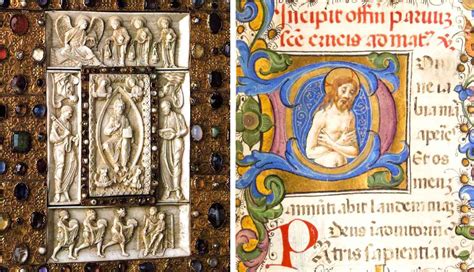 Incipit offm paruuz
sce crucis ad mat
Domi
ne la
bia m
aperi
Et os
meu
annūti abit laudem tuā
Deus in adiutoriū
Patris sapientia